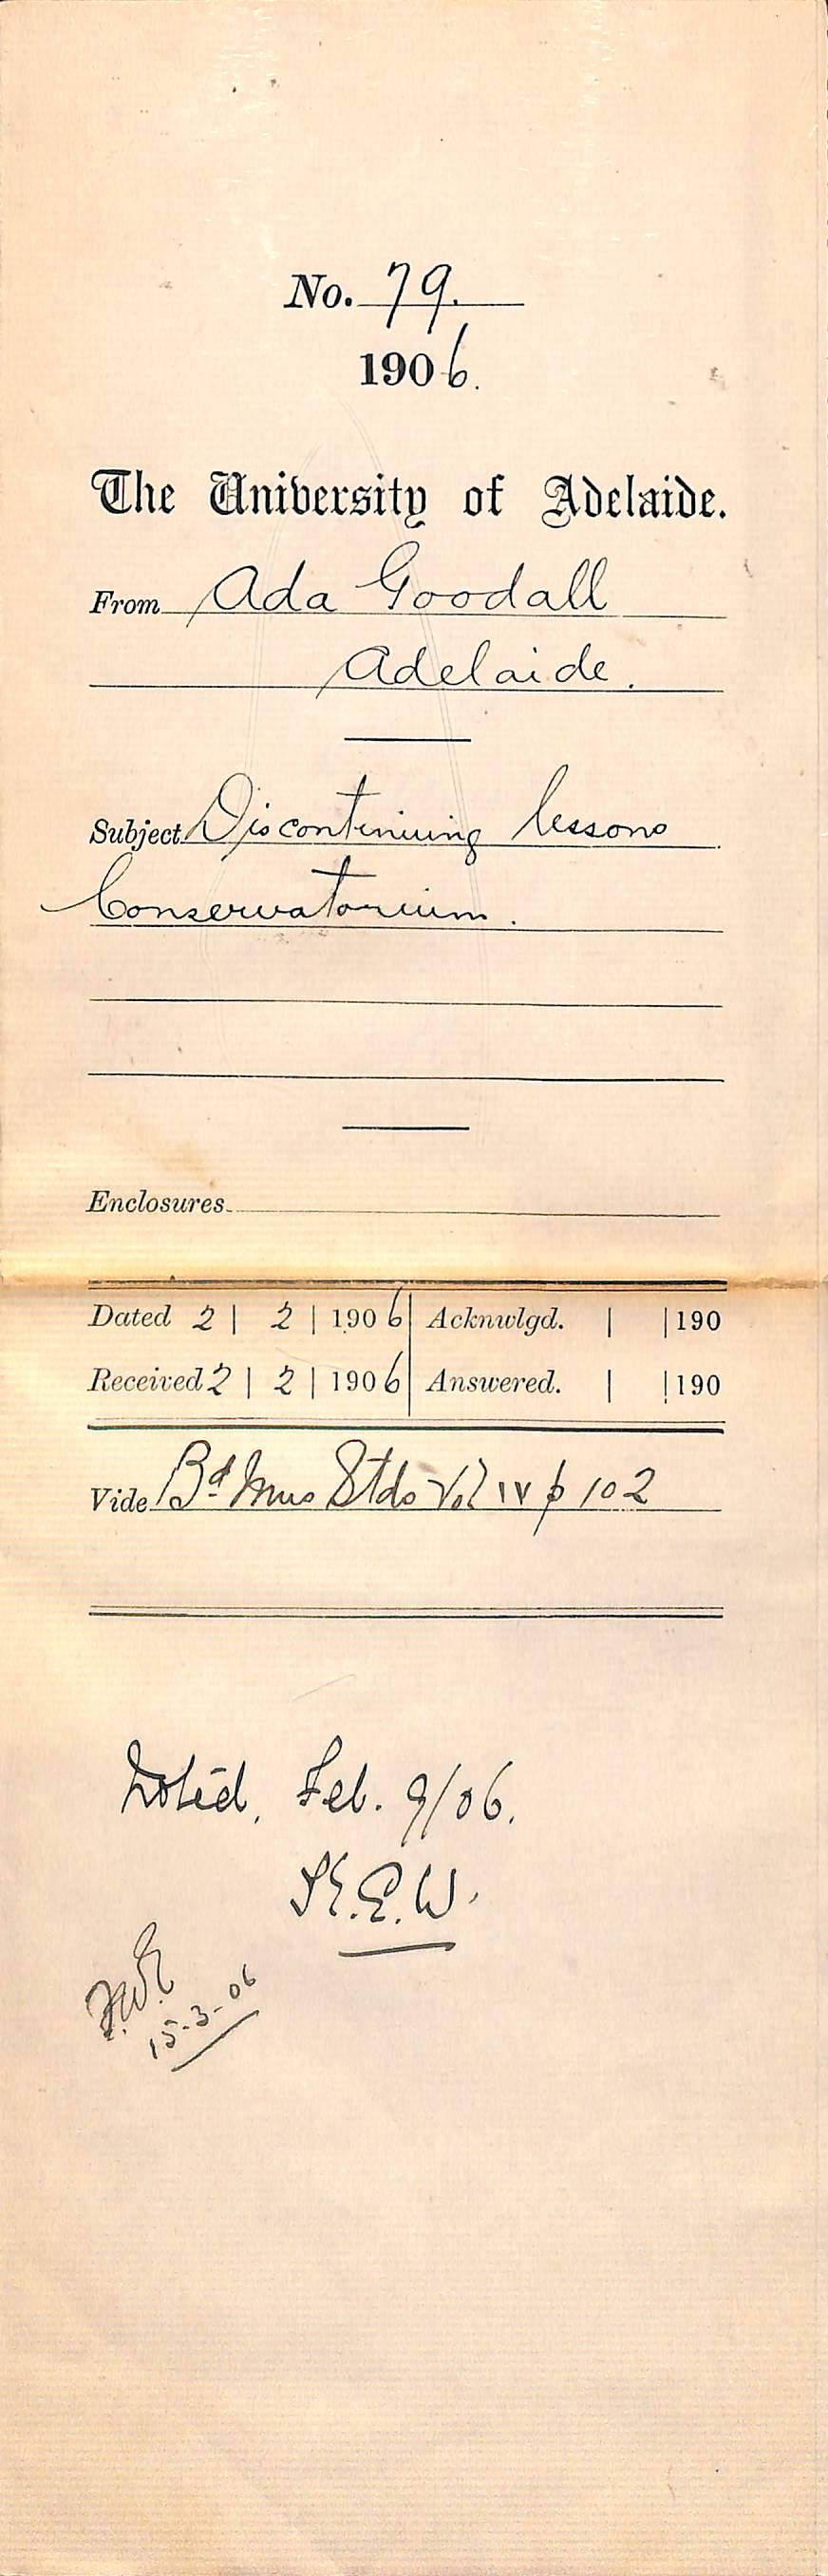 No. 79.
1906.
The University of Adelaide.
From Ada Goodall
Adelaide.
Subject Discontinuing lessons
Conservatorium.
Enclosures
Dated 2 | 2 | 1906 Acknwlgd. | | 190
Received 2 | 2 | 1906 Answered. | | 190
Vide Bd Mus Stds Vol IV p 102
Noted, Feb. 9/06.
K.E.W.
15-3-06